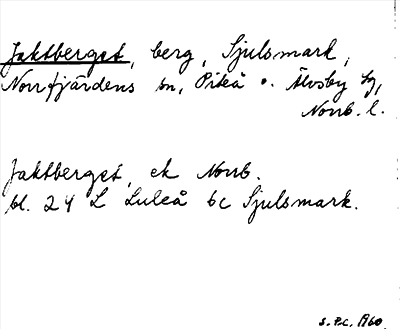 Jaktberget, berg, Sjulsmark,
Norrfjärdens sn, Piteå o. Älvsby tg,
Norrb. l.
Jaktberget, ek Norrb.
bl. 24 L Luleå bc Sjulsmark.
S. P.C. 1960